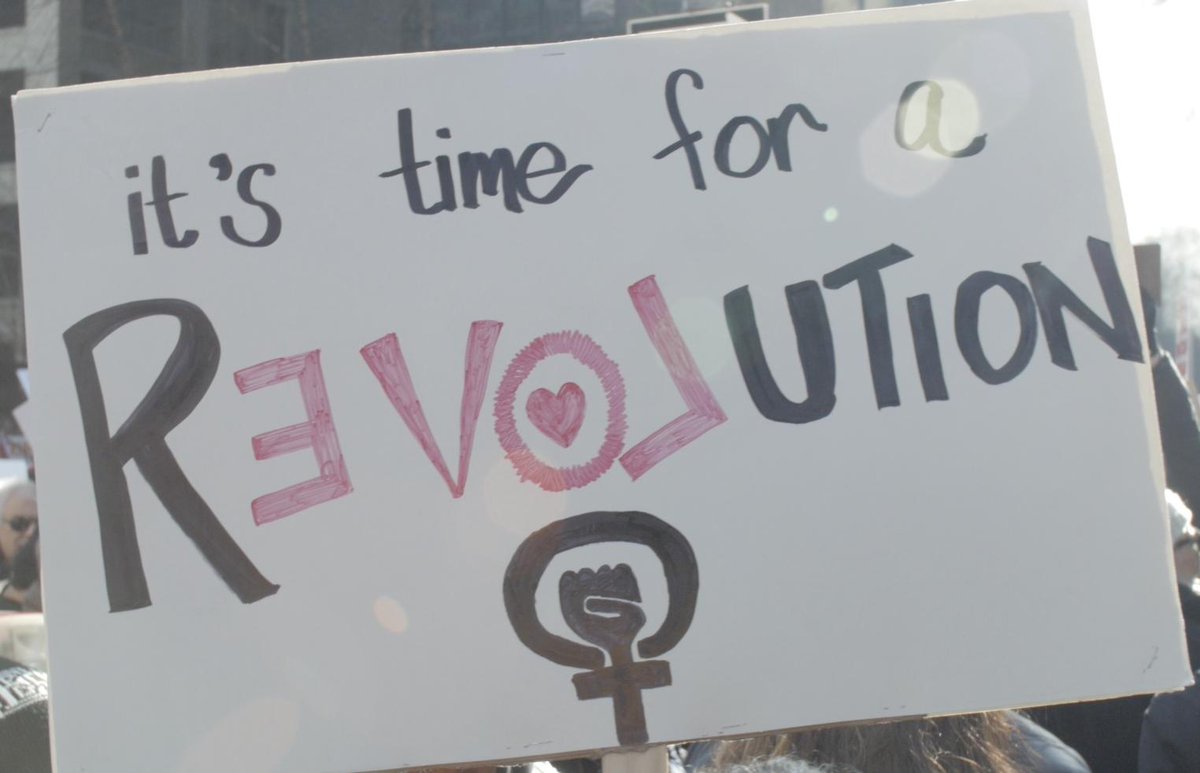 it's time for a
REVOLUTION